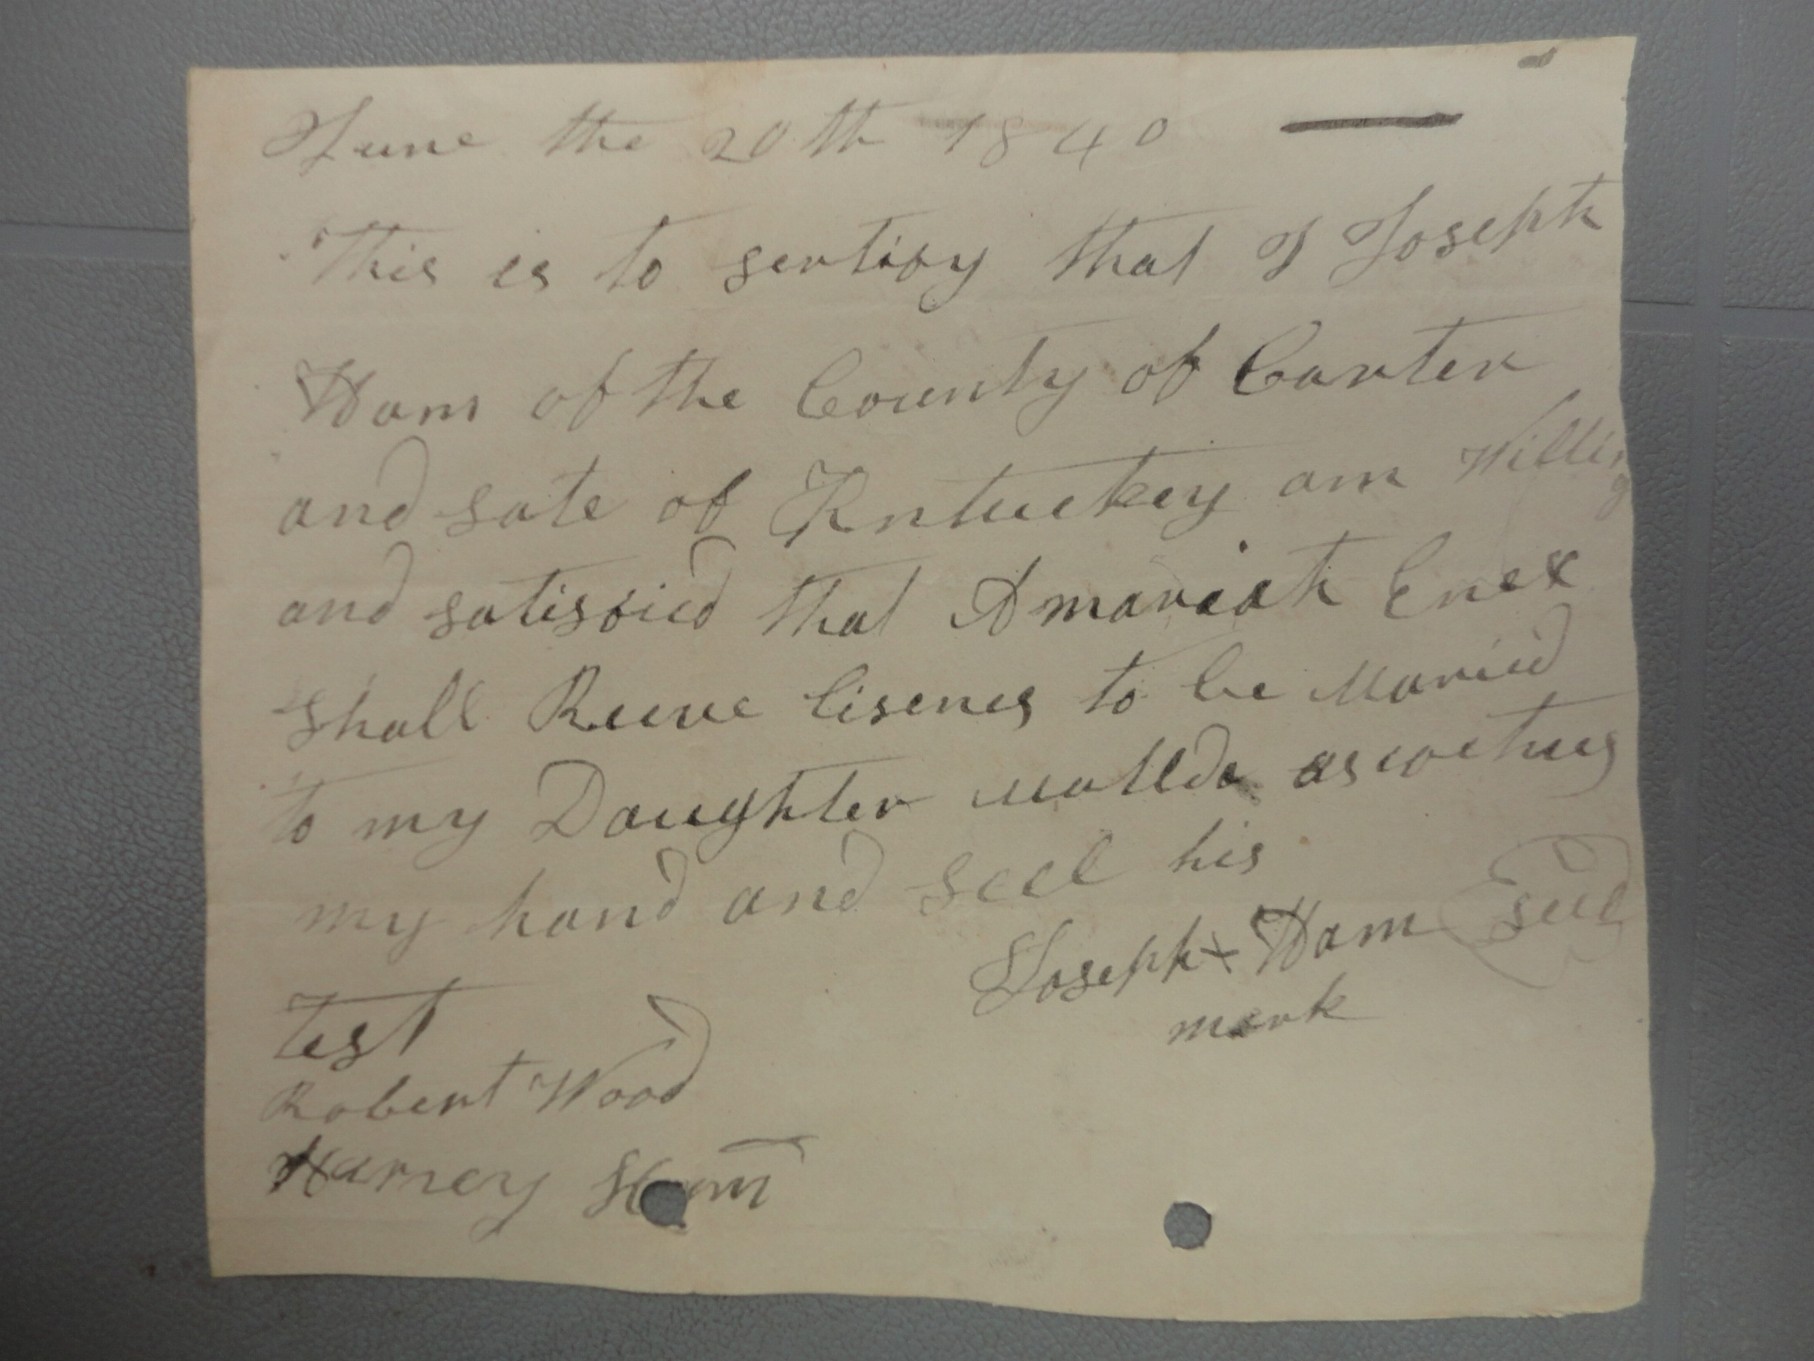 June the 20th 1840
This is to sertify that I Joseph
Ham of the County of Carter
and sate of Kntuckey am Willing
and satisfied that Amariah Enex
Shall Reeve lisenes to be Maried
to my Daughter Matilda as witnes
my hand and seel his
Joseph + Ham seel
mark
Test
Robert Wood
Harvey Ham